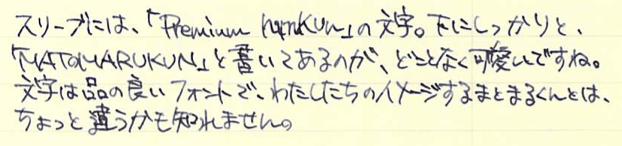 スリーブには、「Premium HINOKUN」の文字。下にしっかりと、
「MATOMARUKUN」と書いてあるのが、どことなく可愛いですね。
文字は品の良いフォントで、わたしたちのイメージするまとまるくんとは、
ちょっと違うかも知れません。